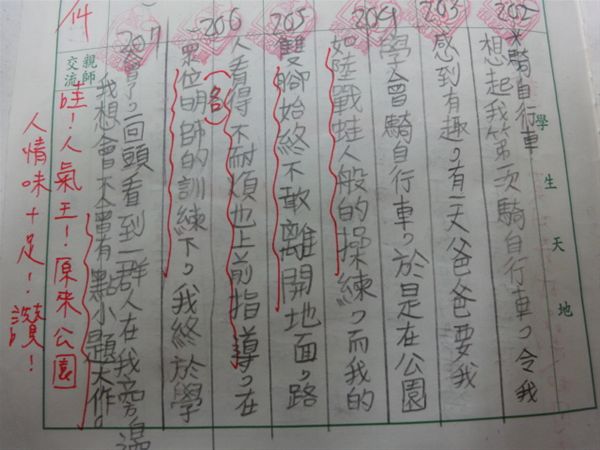 學生天地
202*騎自行車
想起我第一次騎自行車，令我
203
感到有趣，有一天爸爸要我
204
學會騎自行車，於是在公園
如陸戰蛙人般的操練，而我的
205
雙腳始終不敢離開地面，路
206
人看得不耐煩也上前指導，在
(各)
眾位明師的訓練下，我終於學
207
會了，一回頭看到一群人在我旁邊
我想會不會有點小題大作。
親師交流
哇！人氣王！原來公園
人情味十足！讚！
14